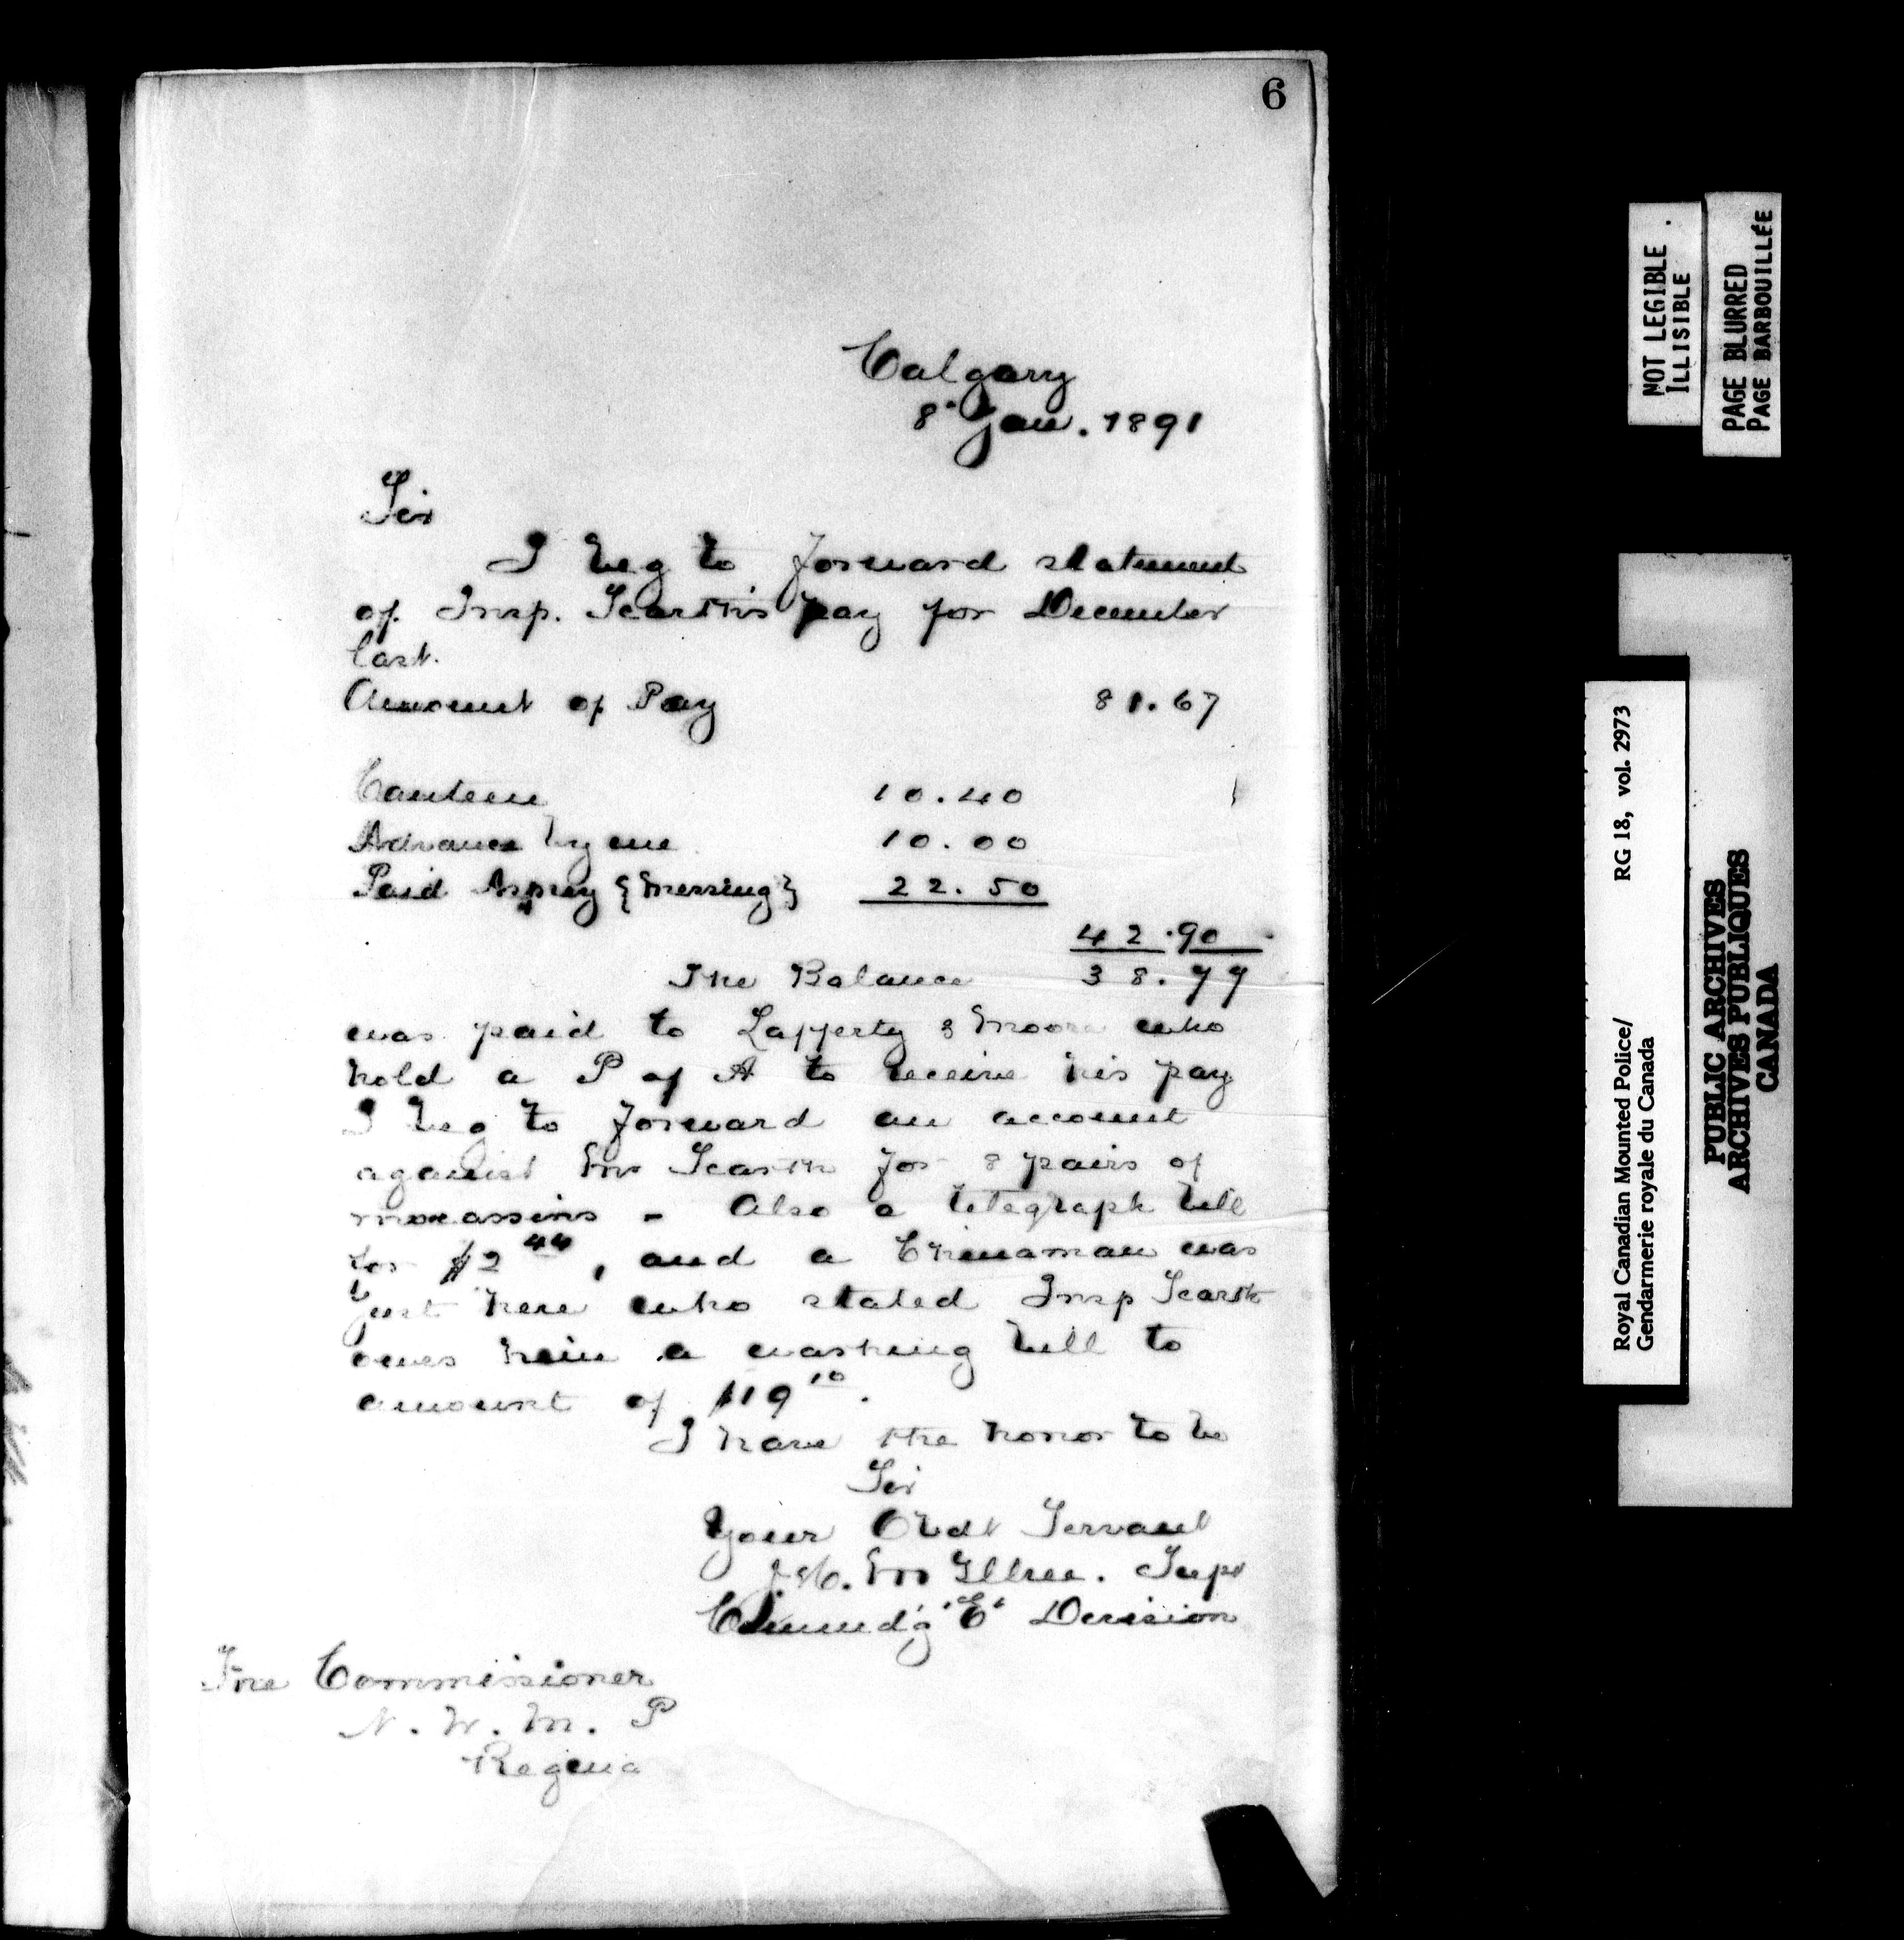 6
Calgary
8 Jan. 1891
Sir
I beg to forward statement
of Insp. Scarth's pay for December
last.
Amount of Pay 81.67
Canteen 10.40
Advance by me 10.00
Paid Asprey {Messing} 22.50
42.90
The Balance 38.77
was paid to Lafferty & Moore who
hold a P of A to receive his pay
I beg to forward an account
against Mr Scarth for 8 pairs of
moccassins - Also a telegraph bill
for $2 44, and a Chinaman was
just here who stated Insp Scarth
owes him a washing bill to
amount of $19 10.
I have the honor to be
Sir
Your Obdt Servant
J.H. McIllree. Supt
Commd'g "E" Division
The Commissioner
N. W. M. P
Regina
NOT LEGIBLE
ILLISIBLE
PAGE BLURRED
PAGE BARBOUILLÉE
Royal Canadian Mounted Police/ RG 18, vol. 2973
Gendarmerie royale du Canada
PUBLIC ARCHIVES
ARCHIVES PUBLIQUES
CANADA